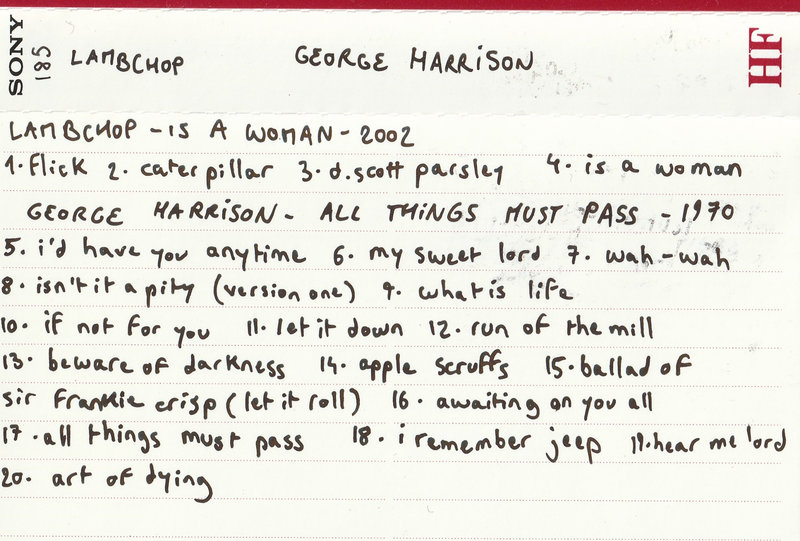 SONY 185 LAMBCHOP GEORGE HARRISON HF
LAMBCHOP - IS A WOMAN - 2002
1. Flick 2. caterpillar 3. d. scott parsley 4. is a woman
GEORGE HARRISON - ALL THINGS MUST PASS - 1970
5. i'd have you anytime 6. my sweet lord 7. wah-wah
8. isn't it a pity (version one) 9. what is life
10. if not for you 11. let it down 12. run of the mill
13. beware of darkness 14. apple scruffs 15. ballad of
sir frankie crisp (let it roll) 16. awaiting on you all
17. all things must pass 18. i remember jeep 19. hear me lord
20. art of dying